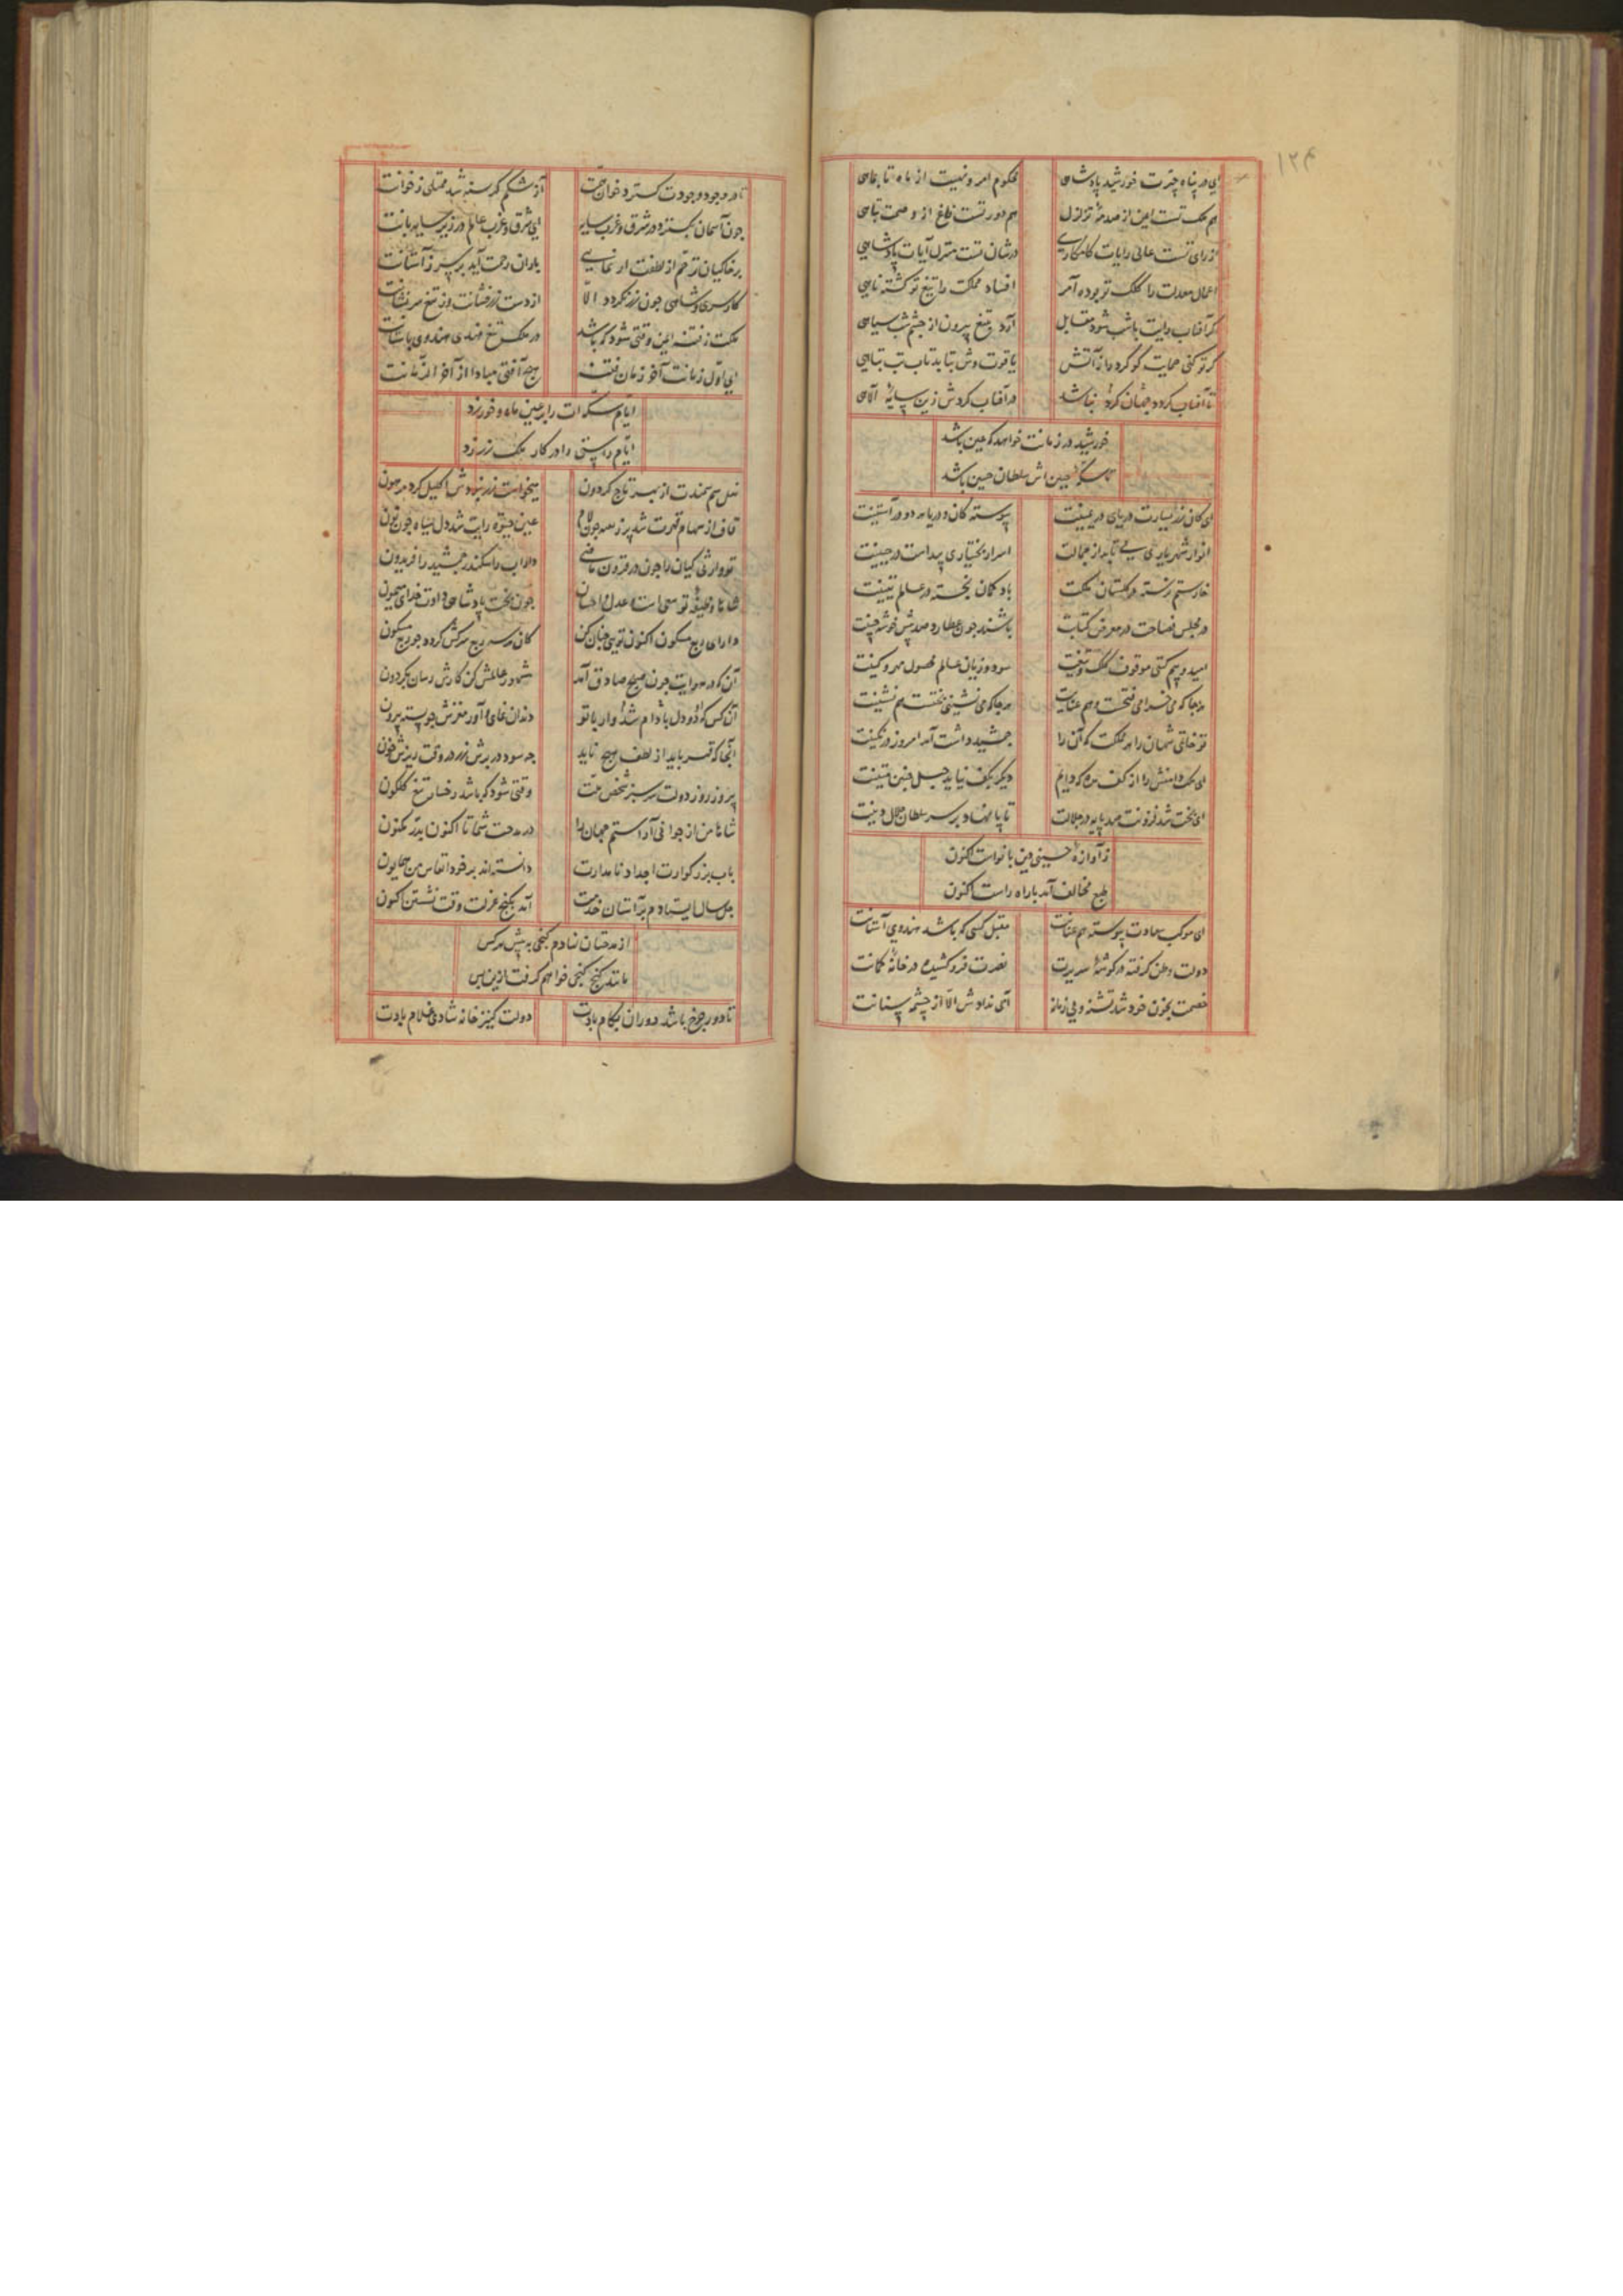 ۱۲۴
ای در پناه چترت خورشید پادشاهی محکوم امر و نهیت از ماه تا بماهی
هم ملک تست ایمن از صدمهٔ تزلزل هم دور تست فارغ از وصمت تباهی
از رای تست عالی رایات کامکاری در شان تست منزل آیات پادشاهی
اعمال معدلت را کلک تو بوده آمر افساد مملکت را تیغ تو کشته ناهی
گر آفتاب رایت با شب شود مقابل آرد بتیغ بیرون از چشم شب سیاهی
گر تو کنی حمایت گوگرد را ز آتش یاقوت وش نیابد تاب تب تباهی
تا آفتاب گردد جهان گرد نباشد در آفتاب گردش زین سایهٔ الهی
خورشید در زمانت خواهد که عین باشد
تا سکهٔ عین اش سلطان حسین باشد
ای کانی زر یسارت دریای در یمینت پیوسته کان و دریا هر دو در آستینت
انوار شهریاری می تابد از جمالت اسرار بختیاری پیداست در جبینت
خار ستم نرسته در گلستان ملکت باد گمان نجسته در عالم یقینت
در مجلس فصاحت در معرض کتابت باشند چون عطارد صد پیش خوشه چینت
امید و بیم کلی موقوف کلک و تیغت سود و زیان عالم محصول مهر و کینت
هر جا که می خرامی فتحست هم عنانت هر جا که می نشینی بختست هم نشینت
تو خاتمی شهان را در مملکت که آن را جمشید داشت آمد امروز در نگینت
ای ملک دامنش را از کف مده که دایم دیگر بکف نیاید حبل چنین متینت
ای تخت شد فزونت صد پایه در جلالت تا پا نهاد بر سر سلطان جلال دینت
ز آوازهٔ حسینی دین با نواست اکنون
طبع مخالف آمد با راه راست اکنون
ای موکب سعادت پیوسته هم عنانت مقبل کسی که باشد هندوی آستانت
دولت وطن گرفته در گوشهٔ سریرت نصرت فرو کشیده در خانهٔ کمانت
خصمت بخون خود شد تشنه و لی زمانه آبی ندادش الا از چشمه سنانت
تا در وجود جودت گسترد خوان نعمت آز شکم گرسنه شد ممتلی ز خوانت
چون آسمان بگسترد در شرق و غرب سایه ای شرق و غرب عالم در زیر سایه بانت
بر خاکیان ترحم از لطفت ار نمایی باران رحمت آید بر سر ز آسمانت
کار سری و شاهی چون زر نگردد الا از دست زر فشانت وز تیغ سر فشانت
ملکت ز فتنه ایمن وقتی شود که باشد در ملک تیغ هندی هندوی پاسبانت
ای اول زمانت آخر زمان فتنه هیچ آفتی مبادا از آخر الزمانت
ایام سکه ات را بر عین ماه و خور زد
ایام راستی را در کار ملک زر زد
نعل سم سمندت از بهر تاج گردون میخواست زر نبودش اکلیل کرد مرهون
قاف از سهام قهرت شد پر ز رسه چون لام عین عدو ز رایت شد دل سیاه چون نون
تو وارثی کیان را چون در قرون ماضی داراب را سکندر جمشید را فریدون
شاها وظیفه تو سعی است عدل و احسان چون تخت پادشاهی دادت خدای بیچون
دارای ربع مسکون اکنون تویی چنان کن کان هر سه ربع سرکش گردد چو ربع مسکون
آن کو در هوایت چون صبح صادق آمد مشهور عالمش کن کارش رسان بگردون
آن کس که او دو دل بادام شد وار با تو دندان نمای و آور مغزش چو پسته بیرون
آنجا که قهر باید از لطف هیچ ناید چه سود در برش زر در وقت ریزش خون
پیروز روز دولت سرسبز شخص ملت وقتی شود که باشد رخسار تیغ گلگون
شاها من از جوانی آراستم جهان را در مدحت شما تا اکنون بدر مکنون
باب بزرگوارت اجداد نامدارت دانسته اند بر خود انفاس من همایون
چل سال ایستادم بر آستان خدمت آمد بکنج عزلت وقت نشستن اکنون
از مدحتان نهادم گنجی به پیش هر کس
مانند گنج کنجی خواهم گرفت ازین پس
تا دور چرخ باشد دوران بکام بادت دولت کنیز خانه شادی غلام بادت